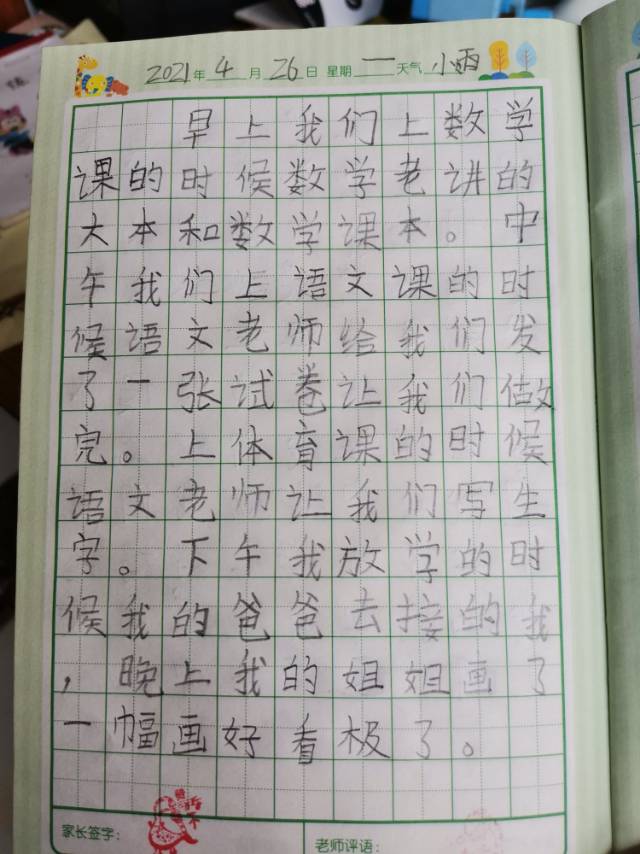 2021年4月26日 星期一 天气小雨
早上我们上数学
课的时候数学老讲的
大本和数学课本。中
午我们上语文课的时
候语文老师给我们发
了一张试卷让我们做
完。上体育课的时候
语文老师让我们写生
字。下午我放学的时
候我的爸爸去接的我
，晚上我的姐姐画了
一幅画好看极了。
家长签字：
老师评语：